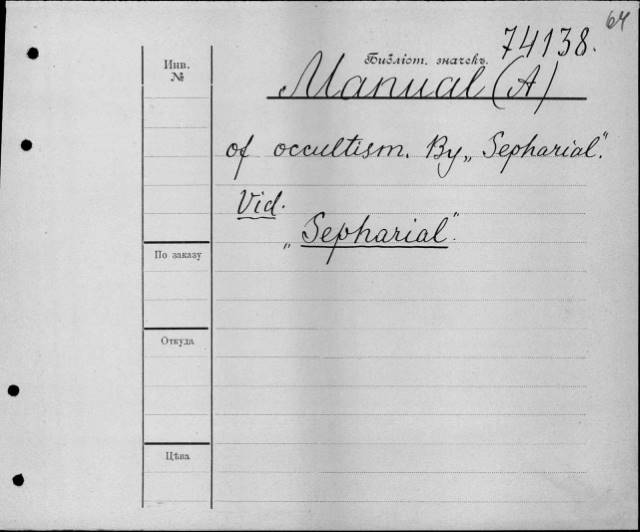 64
74138.
Инв.
№
Библіот. значекъ.
Manual (A)
of occultism. By „Sepharial“.
Vid.
„Sepharial“.
По заказу
Откуда
Цѣна